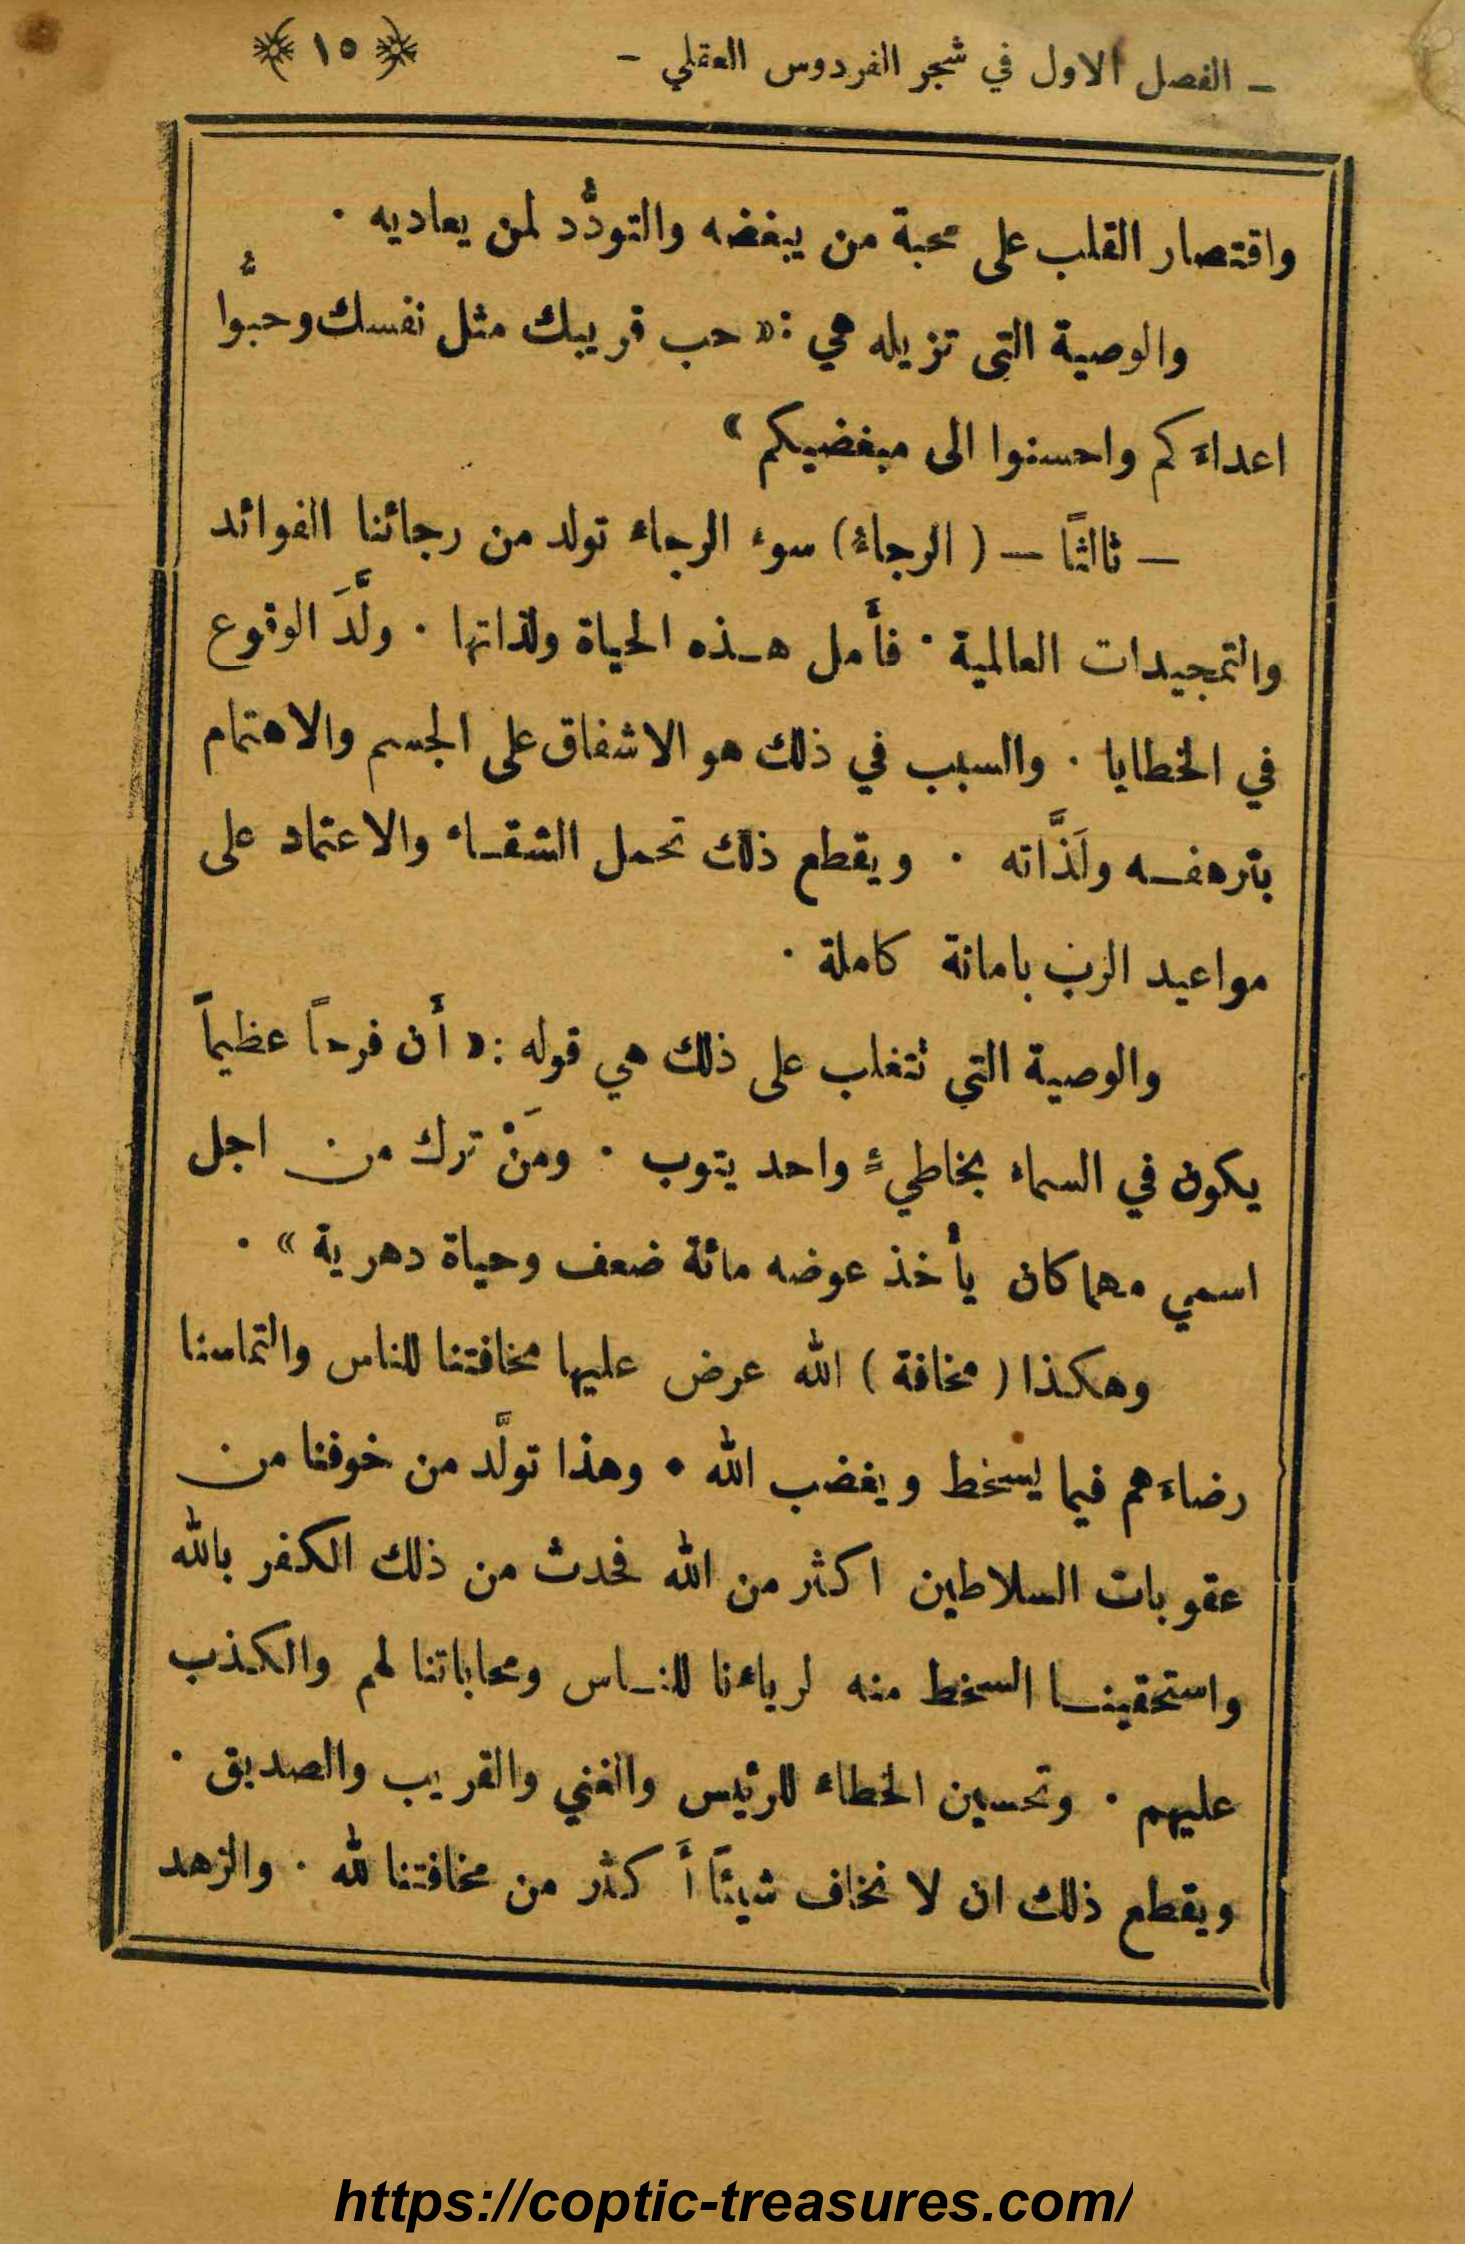 - الفصل الاول في شجر الفردوس العقلي - ﴿ ١٥ ﴾
واقتصار القلب على محبة من يبغضه والتودُّد لمن يعاديه ·
والوصية التي تزيله هي : « حب قريبك مثل نفسك وحبُّوا
اعداءَكم واحسنوا الى مبغضيكم »
— ثالثاً — ( الرجاءُ ) سوء الرجاء تولد من رجائنا الفوائد
والتمجيدات العالمية · فأَمل هـذه الحياة ولذاتها · ولَّدَ الوقوع
في الخطايا · والسبب في ذلك هو الاشفاق على الجسم والاهتمام
بترهفـه ولَذَّاته · ويقطع ذلك تحمل الشقـاء والاعتماد على
مواعيد الرب بامانة كاملة ·
والوصية التي تتغلب على ذلك هي قوله : « أَن فرحاً عظيماً
يكون في السماء بخاطيءٍ واحد يتوب · ومَنْ ترك من اجل
اسمي مهما كان يأْخذ عوضه مائة ضعف وحياة دهرية » ·
وهكذا ( مخافة ) الله عرض عليها مخافتنا للناس والتماسنا
رضاءَهم فيما يسخط ويغضب الله • وهذا تولَّد من خوفنا من
عقوبات السلاطين اكثر من الله فحدث من ذلك الكفر بالله
واستحقينـا السخط منه لرياءنا للنـاس ومحاباتنا لهم والكذب
عليهم · وتحسين الخطاء للرئيس والغني والقريب والصديق ·
ويقطع ذلك ان لا نخاف شيئاً أَكثر من مخافتنا لله · والزهد
https://coptic-treasures.com/